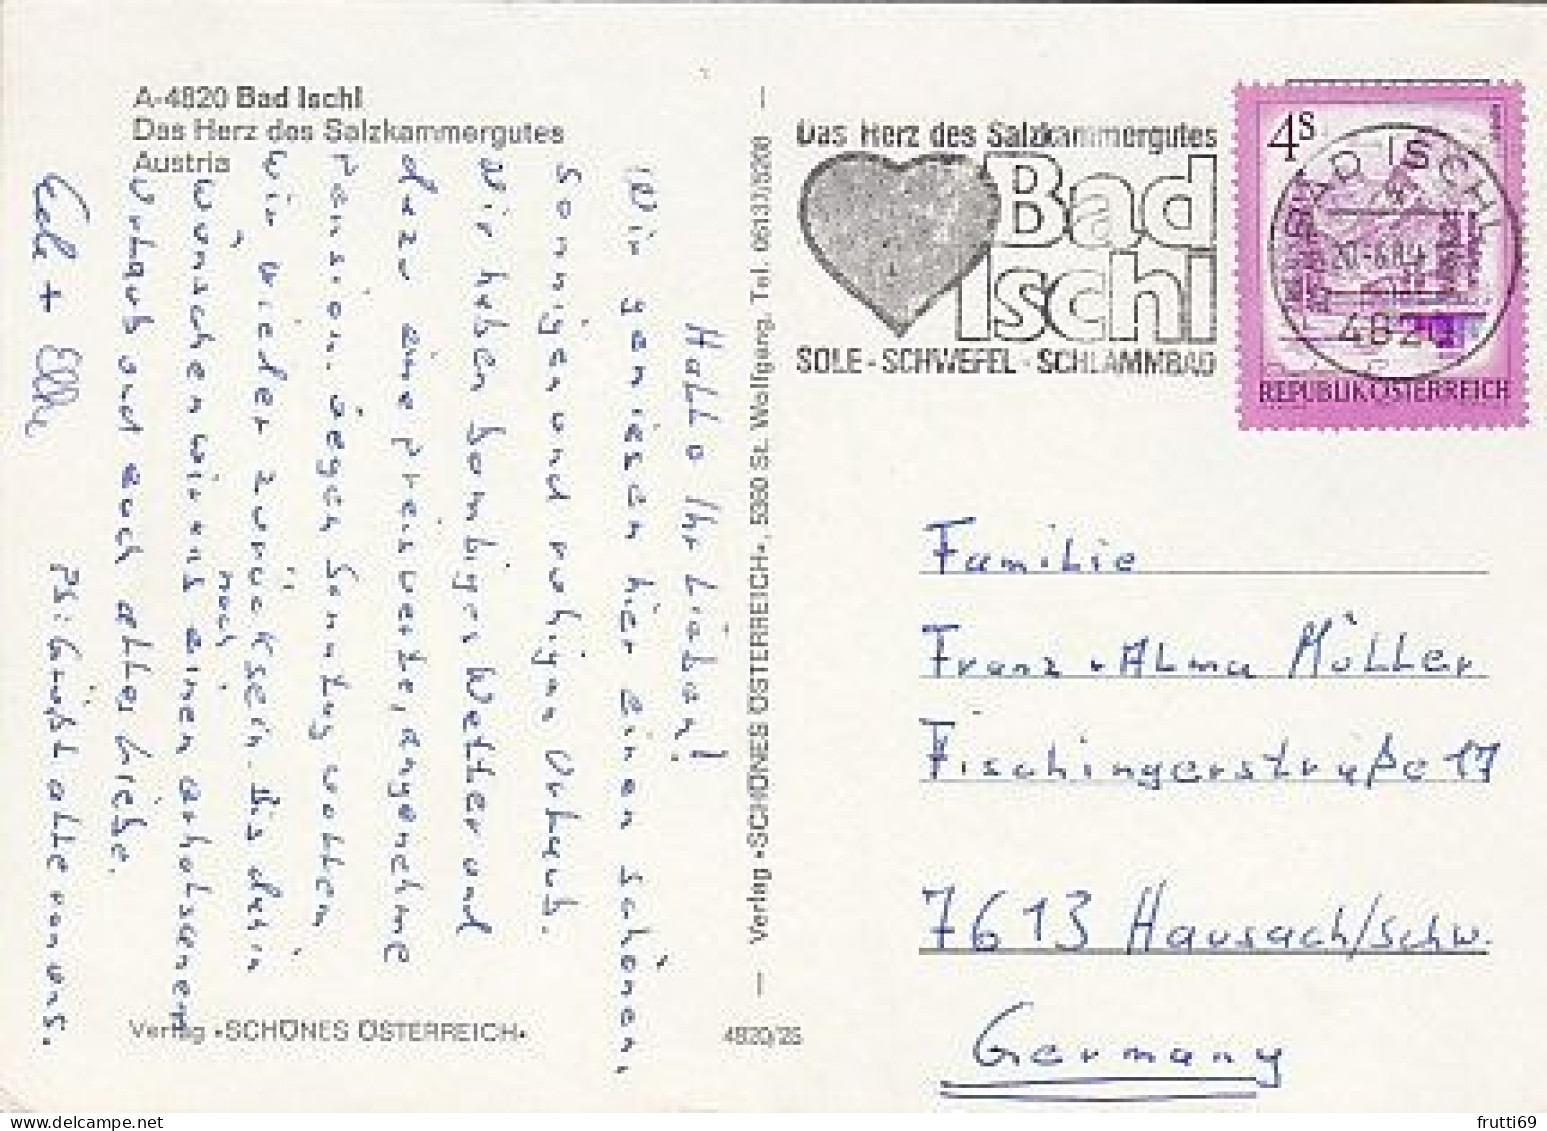 A-4820 Bad Ischl
Das Herz des Salzkammergutes
Austria
Hallo Ihr Lieben!
Wir geniesen hier einen schönen,
sonnigen und ruhigen Urlaub.
Wir haben Sombiges Wetter und
dazu eine preiswerte, angenehme
Pension. Gegen Sonntag wollen
wir wieder zurück sein. Bis dahin
wünschen wir uns noch einen erholsamen
Urlaub und euch alles Liebe.
Edi + Elke
PS: Grüßt alle von uns.
Verlag «SCHÖNES ÖSTERREICH»
4820/26
Verlag «SCHÖNES ÖSTERREICH», 5360 St. Wolfgang, Tel. 06137/5200
Das Herz des Salzkammergutes
Bad
Ischl
SOLE - SCHWEFEL - SCHLAMMBAD
4S
BAD ISCHL
4820
REPUBLIK ÖSTERREICH
Familie
Franz + Alma Müller
Fischingerstraße 17
7613 Hausach/Schw.
Germany